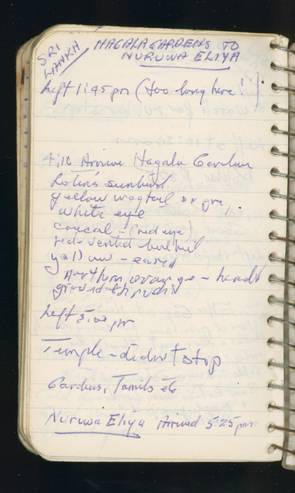 SRI LANKA
HAGALA GARDENS TO
NURUWA ELIYA
Left 1:45 pm (too long here!)
4:16 Arrive Hagala Gardens
Loten's sunbird
yellow wagtail or grey
white eye
(red eye)
red-vented bulbul
yellow-eared
Northern orange - headed
ground thrush
Left 5:00 pm
Temple - didn't stop
Gardens, Tamils etc
Nuruwa Eliya Arrived 5:25 pm